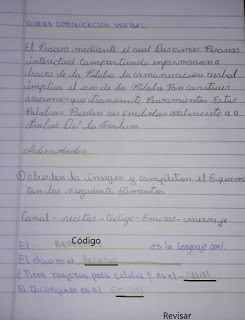 QUE ES COMUNICACION VERBAL
El Proceso mediante el cual Dos o mas Personas
interactuan compartiendo informacion a
traves de la Palabra la comunicacion verbal
implica el uso de la Palabra Para construir
oraciones que transmite Pensamientos Estas
Palabras Pueden ser simbolos
traves De la
Actividades
① observen la imagen y completen el Esquema
con los siguiente Elementos
Canal - receptor - Codigo - Emisor - mensaje
Código
El es la Lenguaje oral.
El chico es el Receptor
¿Tiene Tarjetas para celular? es el Canal
El Quiosquero es el Emisor
Revisar